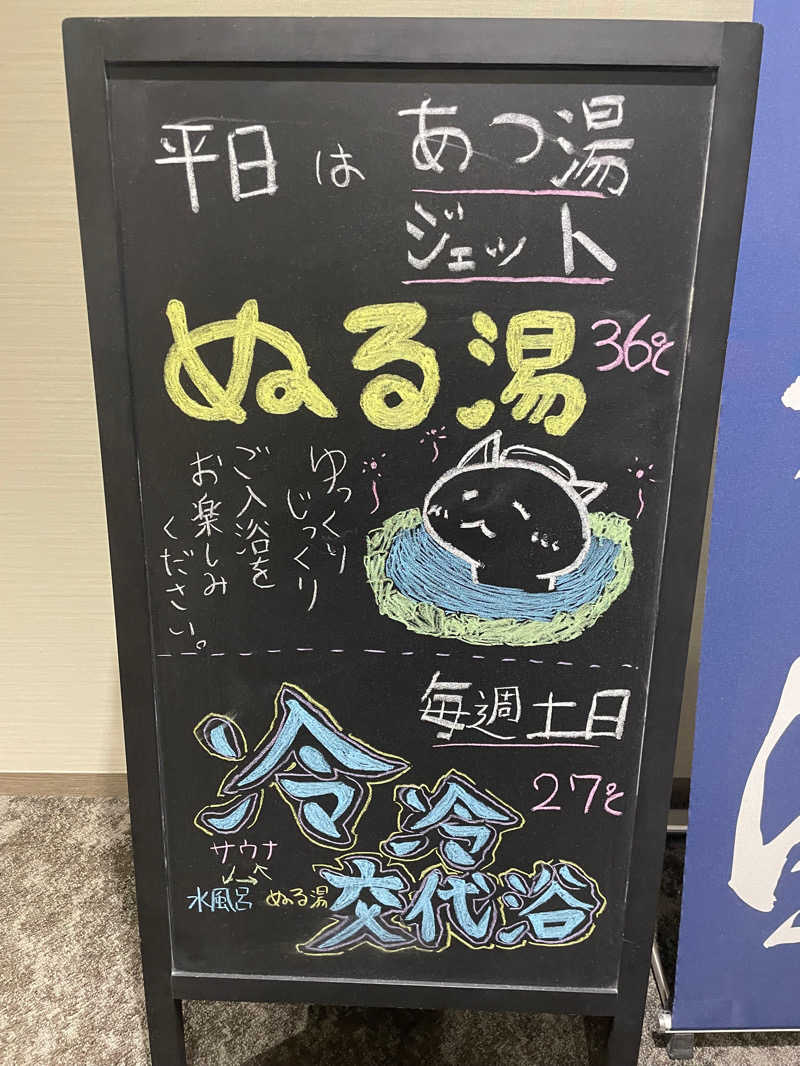 平日は あつ湯
ジェット
ぬる湯 36℃
ゆっくり
じっくり
ご入浴を
お楽しみ
ください。
毎週土日
冷冷 27℃
交代浴
サウナ
水風呂 ぬる湯